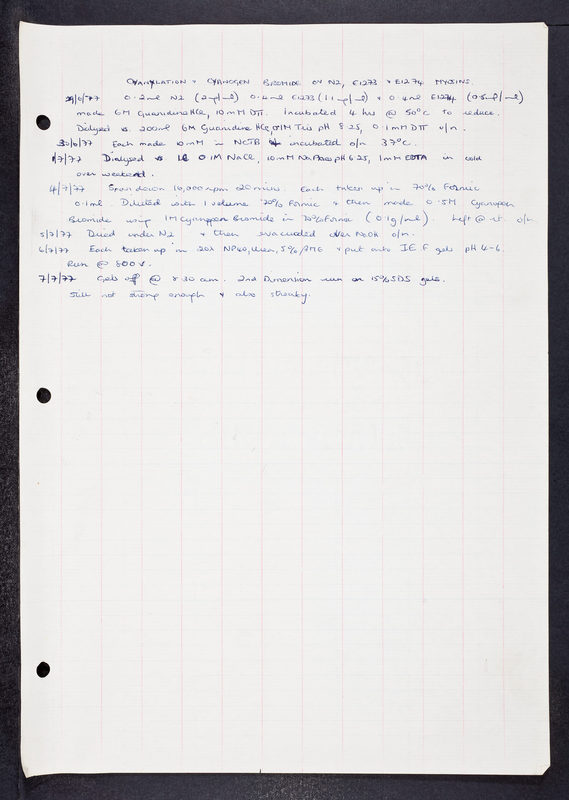 CYANYLATION + CYANOGEN BROMIDE ON N2, E1273 + E1274 MYOSINS.
29/6/77 0.2ml N2 (2mg/ml) 0.4ml E1273 (1.1mg/ml) + 0.4ml E1274 (0.8mg/ml)
made 6M Guanidine HCl, 10mM DTT. Incubated 4 hrs @ 50°C to reduce.
Dialysed vs. 200ml 6M Guanidine HCl, 0.1M Tris pH 8.25, 0.1mM DTT o/n.
30/6/77 Each made 10mM in NCTB & incubated o/n 37°C.
1/7/77 Dialysed vs 1l 0.1M NaCl, 10mM Na Phos pH 6.25, 1mM EDTA in cold
over weekend.
4/7/77 Spun down 10,000rpm 20mins. Each taken up in 70% Formic
0.1ml. Diluted with 1 volume 70% Formic + then made 0.5M Cyanogen
Bromide using 1M Cyanogen Bromide in 70% Formic (0.1g/ml). Left @ rt. o/n
5/7/77 Dried under N2 + then evacuated over NaOH o/n.
6/7/77 Each taken up in 20λ NP40, Urea, 5% βME + put onto IEF gels pH 4-6.
Run @ 800v.
7/7/77 Gels off @ 8.30 am. 2nd Dimension run on 15% SDS gels.
Still not strong enough + also streaky.